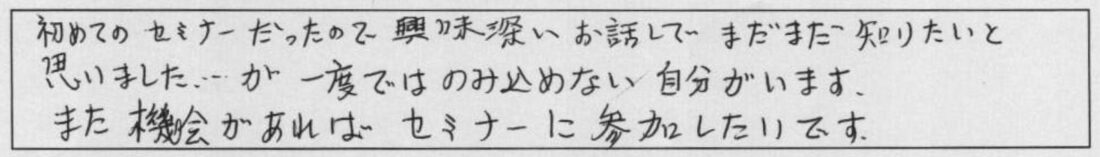 初めてのセミナーだったので興味深いお話しでまだまだ知りたいと
思いました…が一度ではのみ込めない自分がいます.
また機会があればセミナーに参加したいです.